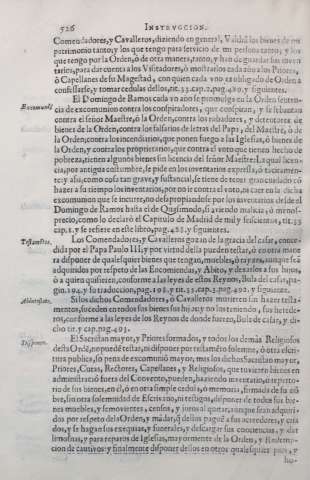 526 INSTRVCCION.
Comendadores, y Cavalleros, diziendo en general, Valdrà los bienes de mi
patrimonio tanto, y los que tengo para servicio de mi persona tanto, y los
que tengo por la Orden, ò de otra manera, tanto, y han de guardar los inven
tarios, para dar cuenta a los Visitadores, ò mostrarlos cada año a los Priores,
ò Capellanes de su Magestad, con quien cada vno es obligado de Orden a
confessarse, y tomar cedulas dellos, tit. 53. cap. 2. pag. 480. y siguientes.
El Domingo de Ramos cada vn año se promulga en la Orden senten-
Excomunió cia de excomunion contra los conspiradores, que conspiran, y se lebantan
contra el señor Maestre, ò la Orden, contra los robadores, y detentores de
bienes de la Orden, contra los falsarios de letras del Papa, del Maestre, ò de
la Orden, contra los incendiarios, que ponen fuego a las Iglesias, ò bienes de
la Orden, y contra los proprietarios, que contra el voto que tienen hecho de
pobreza, tienen algunos bienes sin licencia del señor Maestre: La qual licen-
cia, por antigua costumbre, se pide en los inventarios expressa, ò tacitamen-
te: y assi, como cosa tan grave, y sustancial, se tiene de tener gran cuidado cō
hazer a su tiempo los inventarios, por no ir contra el voto, ni caer en la dicha
excomunion que se incurre, no desapropiandose por los inventarios desde el
Domingo de Ramos hasta el de Quasimodo, si aviendo malicia, ò menos-
precio, como lo declarò el Capitulo de Madrid de mil y seiscientos, tit. 53
cap. 1. y se refiere en este libro, pag. 481. y siguientes.
Testamētos. Los Comendadores, y Cavalleros gozan de la gracia del casar, conce-
dida por el Papa Paulo III. y por virtud della pueden testar, ò en otra mane
ra disponer de qualesquier bienes que tengan, muebles, ò rayzes, aunque seā
adquiridos por respeto de las Encomiendas, y Abito, y dexarlos a sus hijos,
ò a quien quisieren, conforme a las leyes de estos Reynos, Bula del casar, pa-
gin. 194. y su traduccion, pag. 198. y tit. 53. cap. 3. pag. 492. y siguiente.
Abintestato. Si los dichos Comendadores, ò Cavalleros murieren sin hazer testa-
mentos, suceden en todos sus bienes sus hijos; y no los teniendo, sus herede-
ros, conforme a las leyes de los Reynos de donde fueren, Bula de casar, y di-
cho tit. y cap. pag. 493.
Disponer. El Sacristan mayor, y Priores formados, y todos los demàs Religiosos
desta Ordē, no puedē testar, ni disponer por testamēto solemne, ò otra escri-
tura publica, so pena de excomunió mayor, mas los dichos Sacristan mayor,
Priores, Curas, Rectores, Capellanes, y Religiosos, que tuvieren bienes en
administracion fuera del Convento, pueden, haziendo inventario, se partito-
rio de sus bienes, en èl, ò en otra simple cedula, ò memoria, firmada de su nō
bre, sin otra solemnidad de Escrivano, ni testigos, disponer de todos sus bie-
nes muebles, y semovientes, censos, y juros al quitar, aunque sean adquiri-
dos por respeto dela Orden, y mādar, q̄ dellos pague a sus acreedores, y cria
dos, y se hagan sus exequias, y funerales, y descargar sus conciencias, y dar
limosnas, y para reparos de Iglesias, mayormente de la Orden, y Redemp-
cion de cautivos: y finalmente disponer dellos en otros qualesquier pios, y
ho-